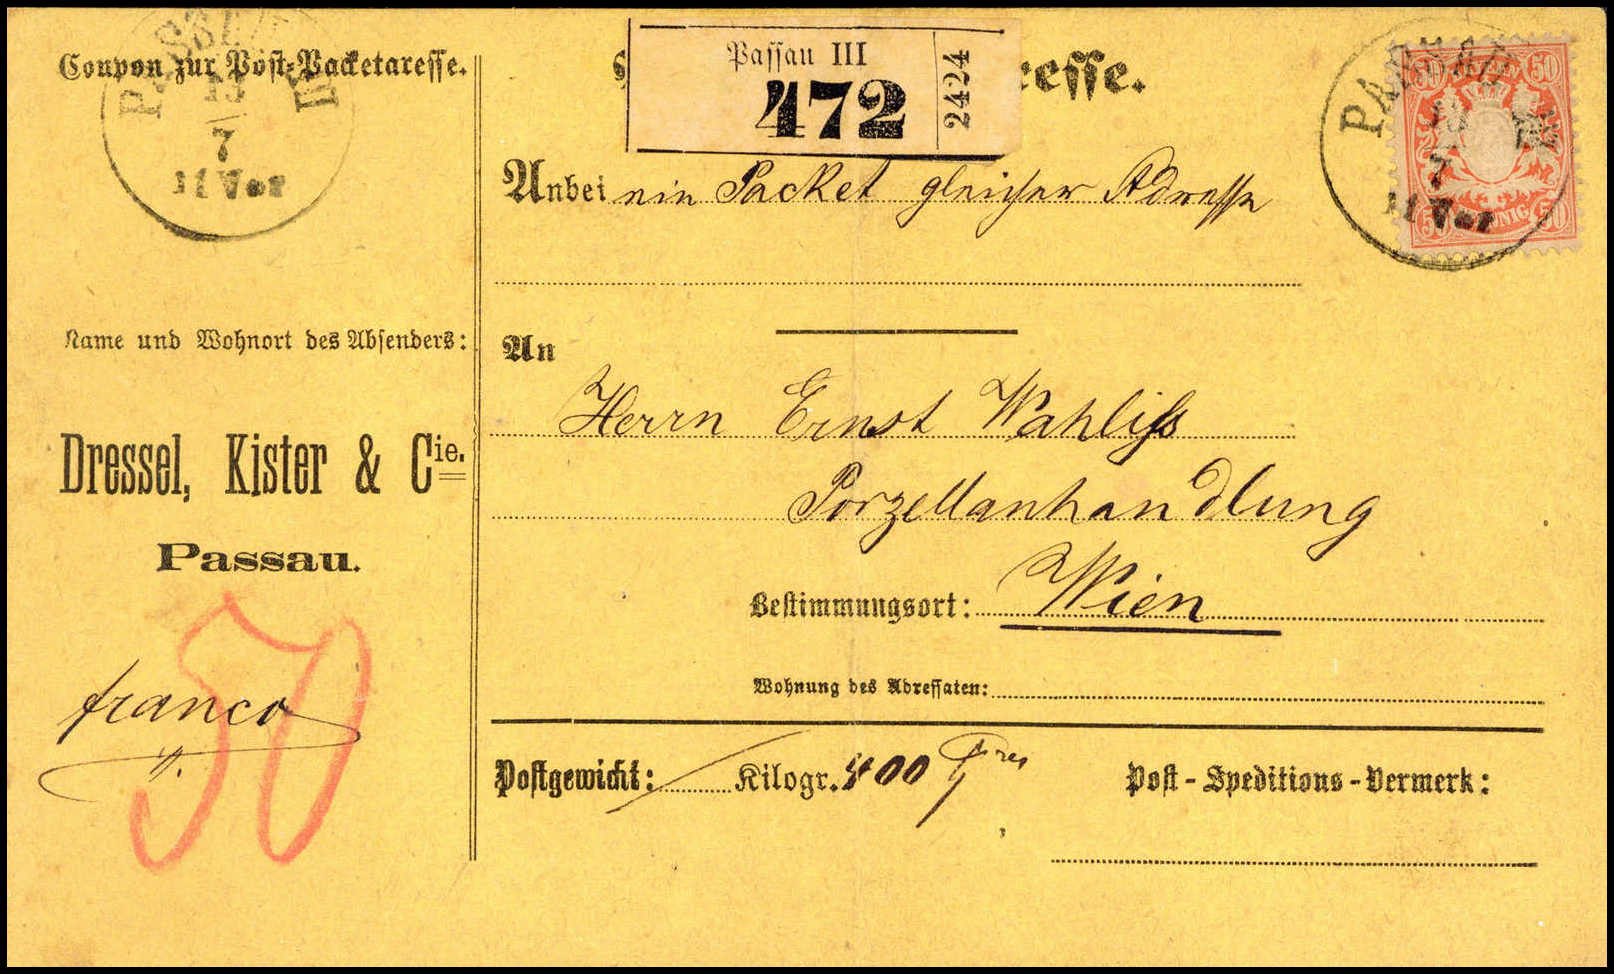 Coupon zur Post-Packetaresse.
PASSAU III
13
7
11 Vor
Name und Wohnort des Absenders:
Dressel, Kister & Cie.
Passau.
50
franco
Passau III
472
2424
resse.
PASSAU III
13
7
11 Vor
50 50
50 PFENNIG 50
Anbei ein Packet gleicher Adresse
An
Herrn Ernst Wahliss
Porzellanhandlung
Bestimmungsort: Wien
Wohnung des Adressaten:
Postgewicht: Kilogr. 400
Post-Speditions-Vermerk: